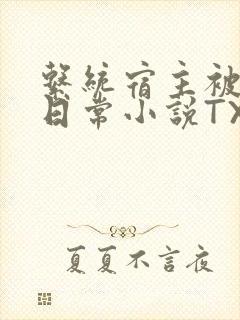 繫統宿主被
日常小說TX
夏夏不言夜